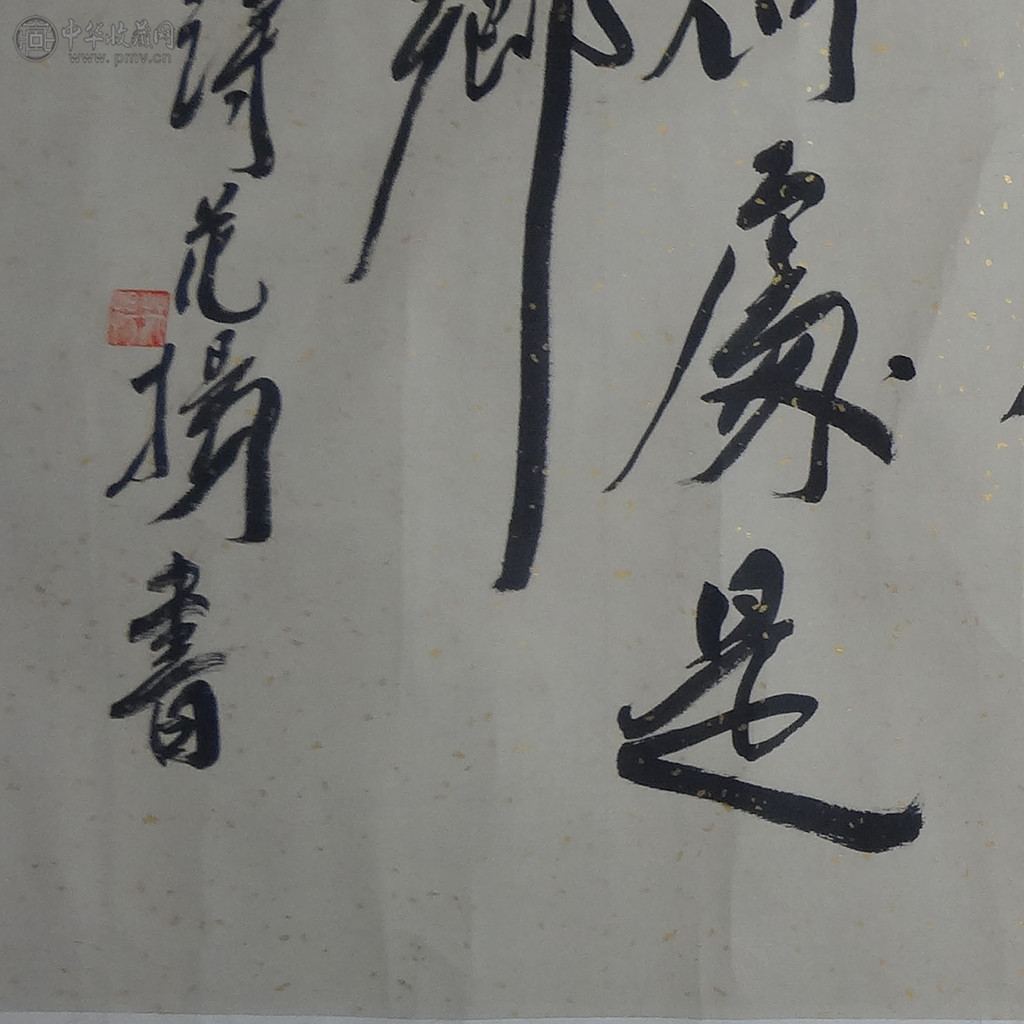 何處是
鄉
詩范揚書
中华收藏网
www.pmv.cn